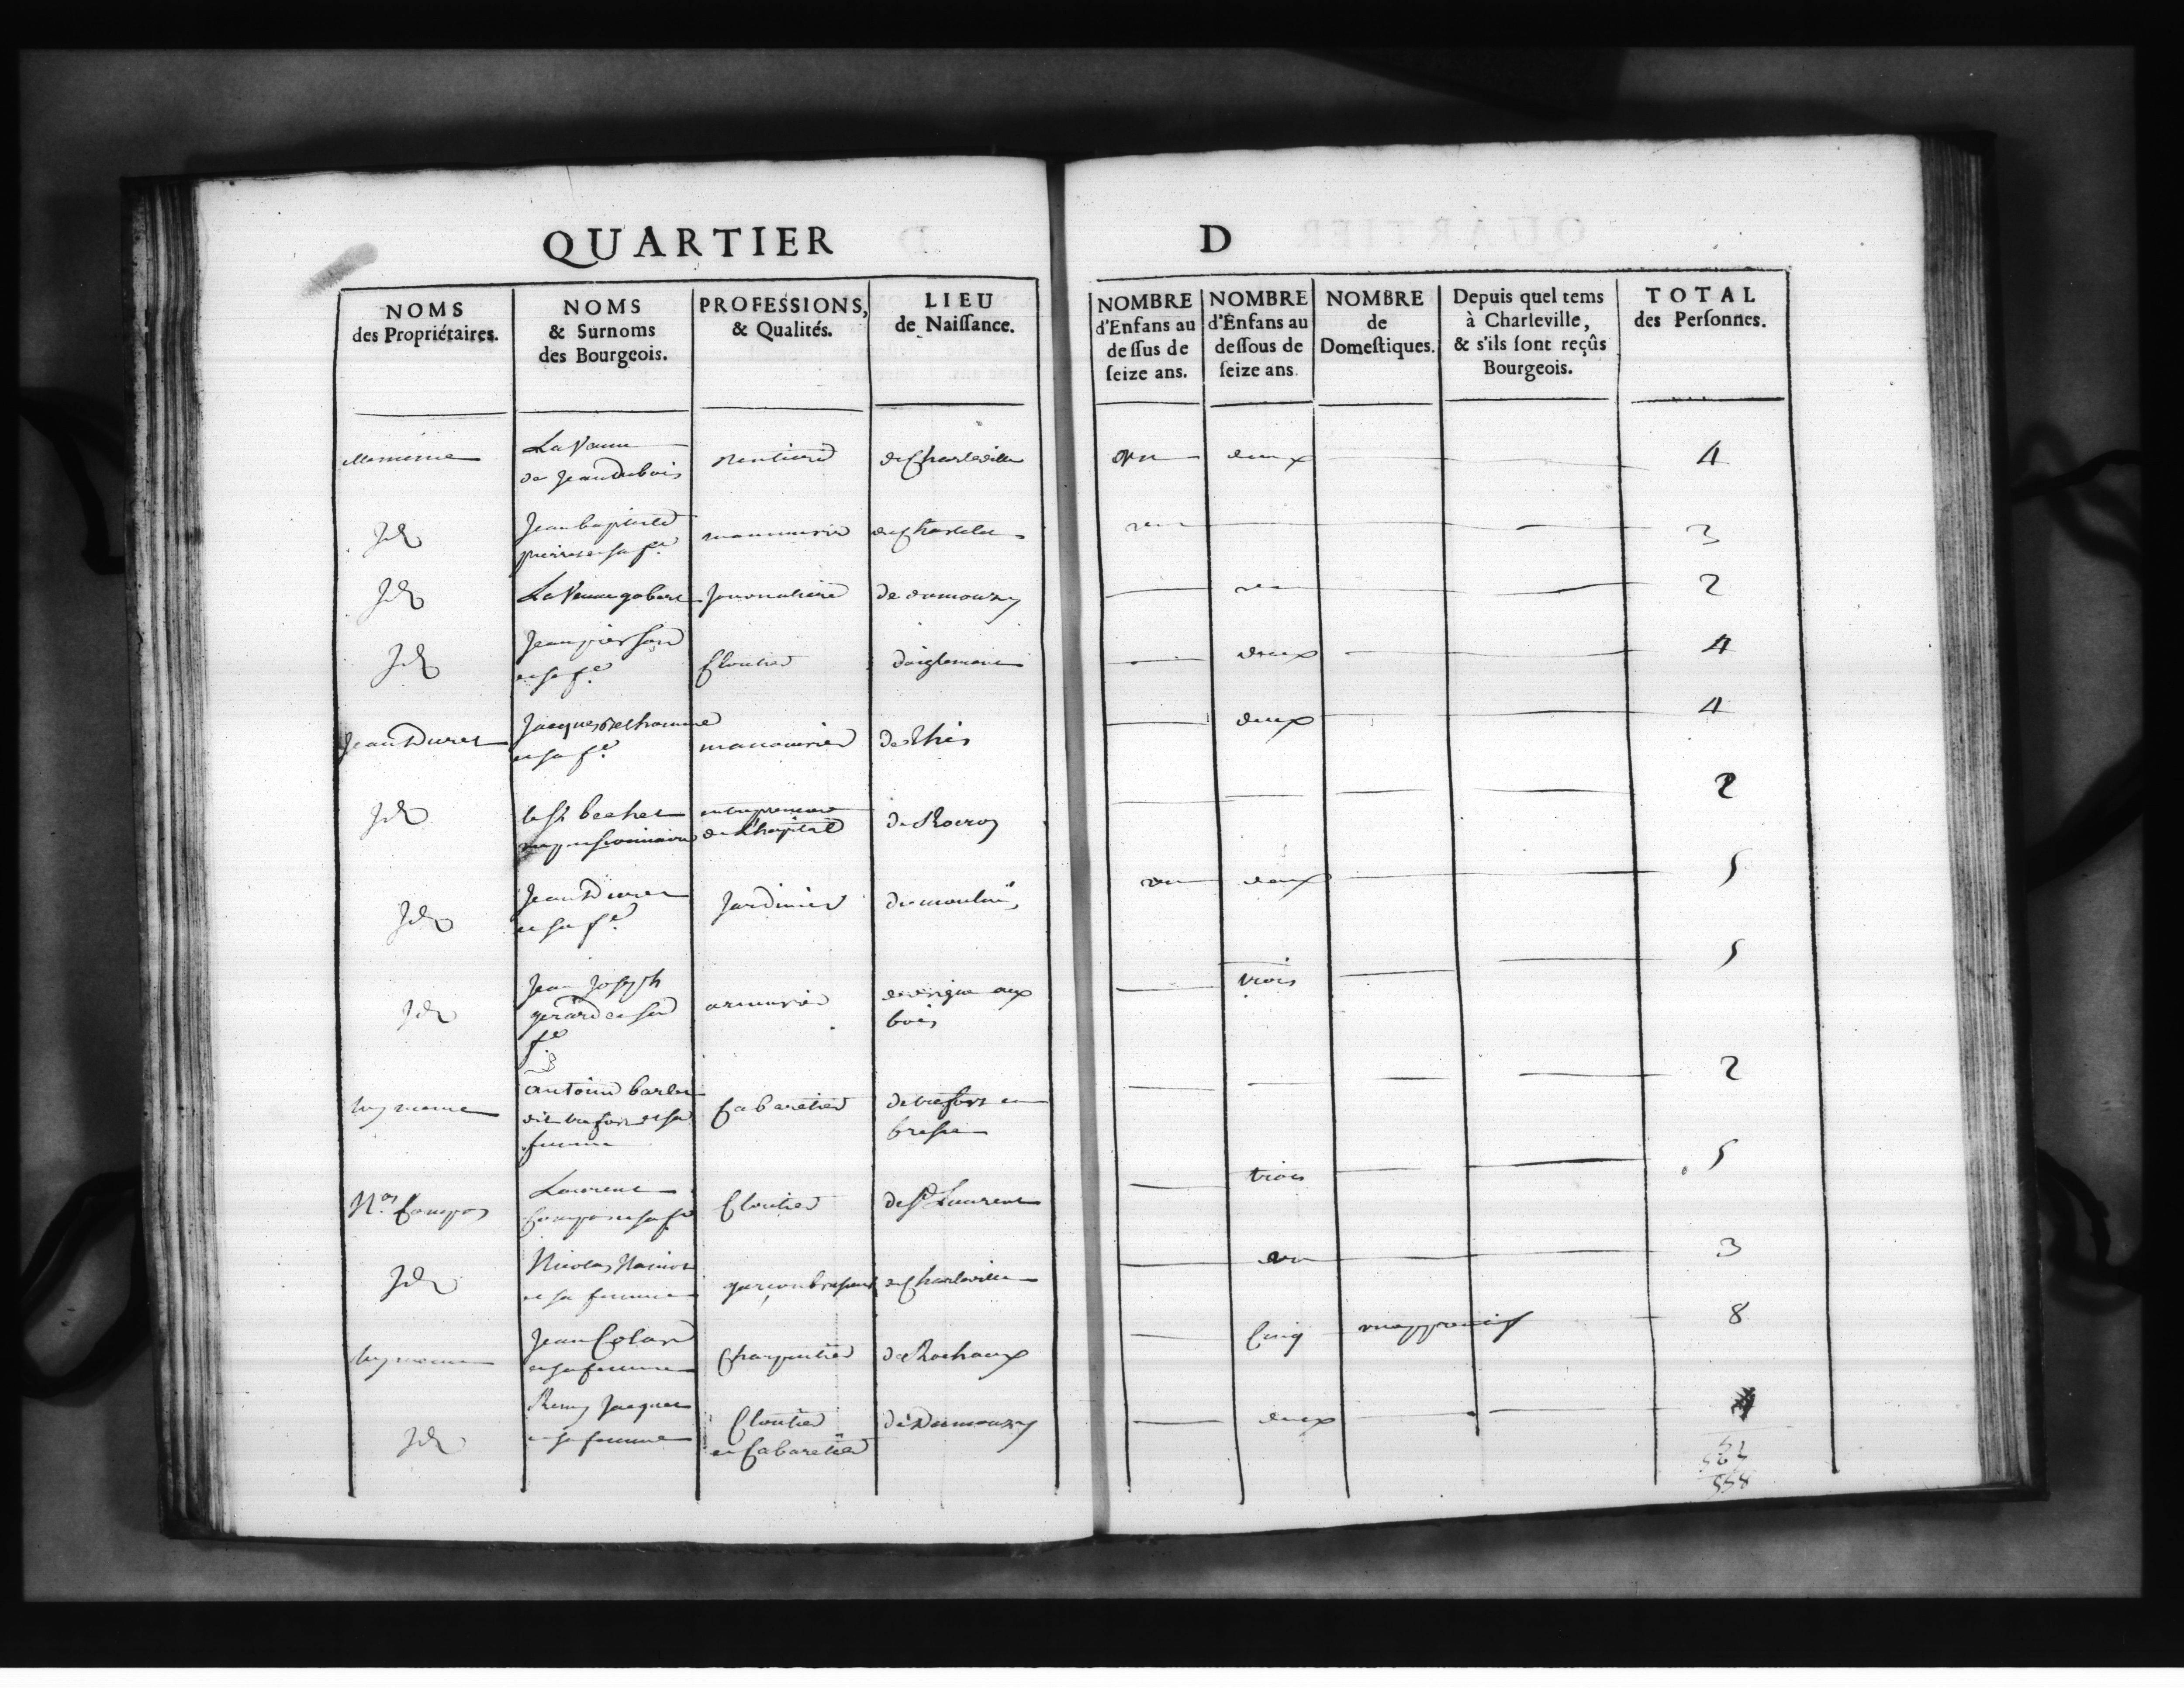 QUARTIER D
NOMS des Propriétaires. NOMS & Surnoms des Bourgeois. PROFESSIONS, & Qualités. LIEU de Naiſſance. NOMBRE d'Enfans au deſſus de ſeize ans. NOMBRE d'Enfans au deſſous de ſeize ans. NOMBRE de Domeſtiques. Depuis quel tems à Charleville, & s'ils ſont reçûs Bourgeois. TOTAL des Perſonnes.
Ellemesme La Veuve de Jean Dubois Rentiere de Charleville un deux 4
Jd Jean baptiste et sa fe manouvrier un 3
Jd La Veuve gobert Journaliere de damouzy un 2
Jd Jean pierson et sa fe Cloutier daiglemont deux 4
Jean Duret Jacques Delhomme et sa fe manouvrier de This deux 4
Jd le Sr bechet entrepreneur de L'hopital de Rocroy 2
Jd Jean Duret et sa fe Jardinier de moulin un deux 5
Jd Jean Joseph gerard et sa fe armurier aux bois trois 5
luy mesme antoine barbe dit trefort et sa femme Cabaretier de trefort en bresse 2
Nas Compas Laurent Compas et sa fe Cloutier de St Laurent trois 5
Jd Nicolas et sa femme garcon brasseur de Charleville un 3
luy mesme Jean Colard et sa femme Charpentier de Rochaux Cinq un apprentif 8
Jd Remy Jacquet et sa femme Cloutier et Cabaretier de Damouzy deux 4
558